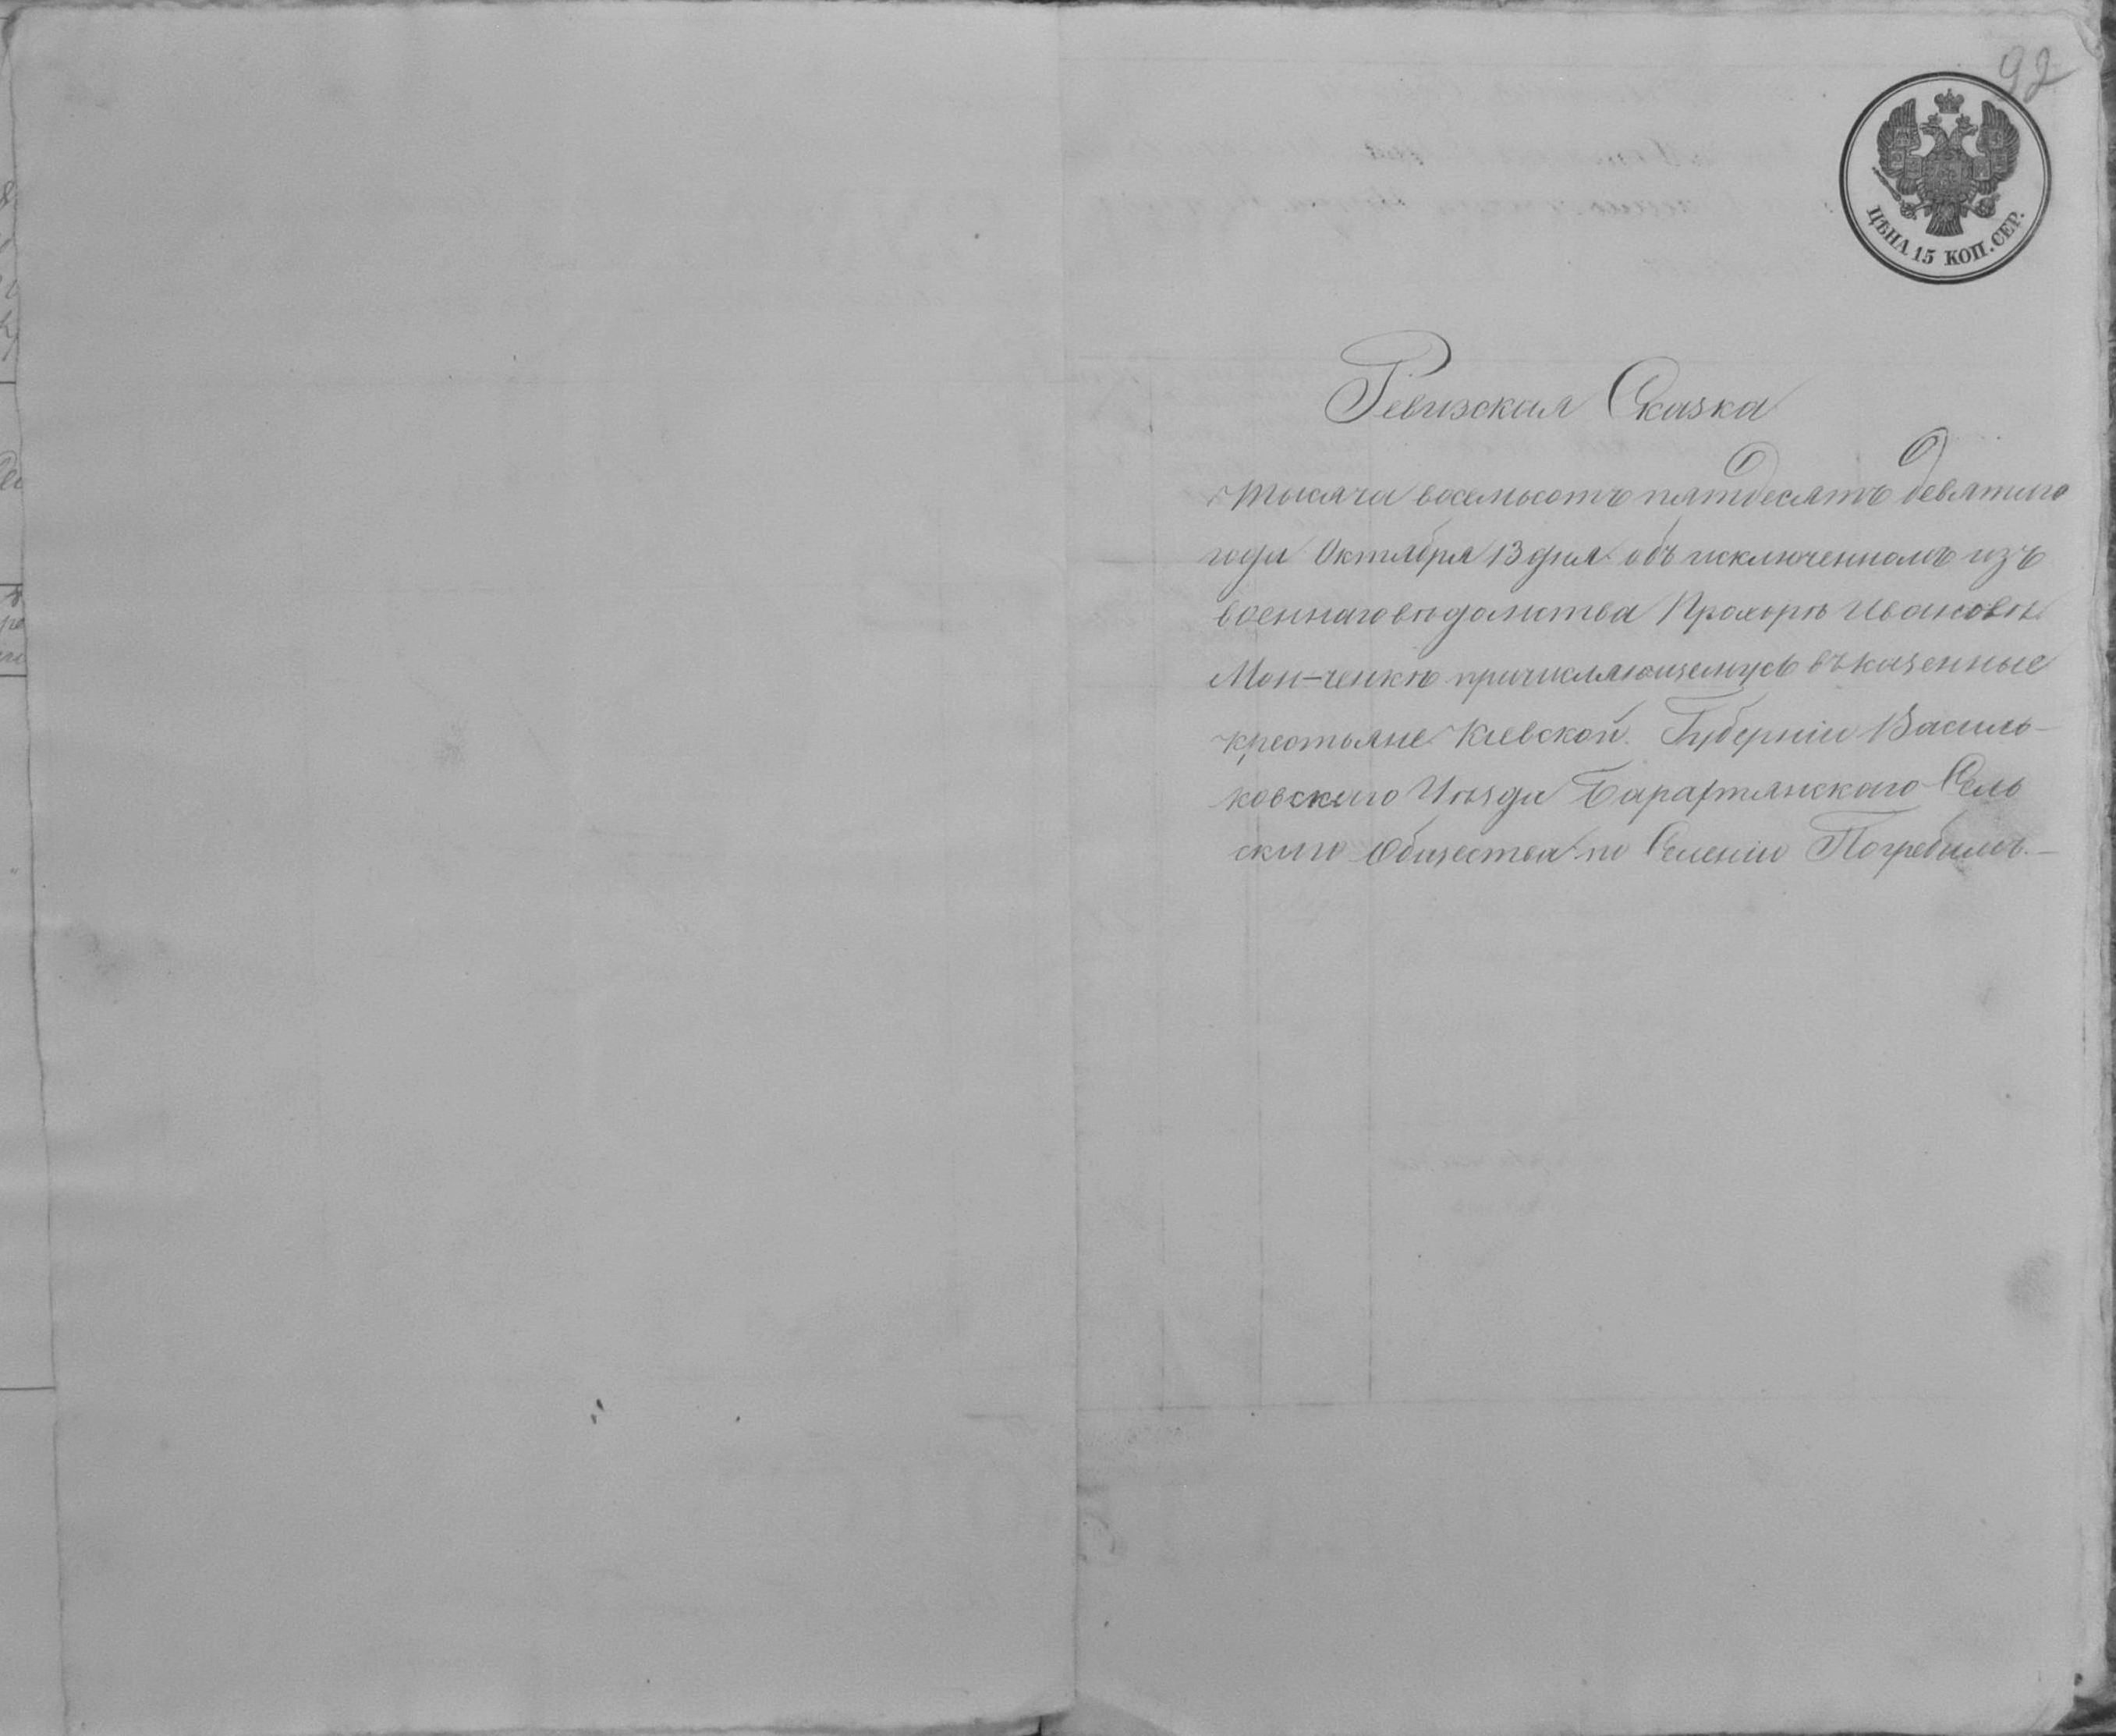 92
ЦѢНА 15 КОП. СЕР.
Ревизская Сказка
тысяча восемьсотъ пятдесятъ девятаго
года Октября 13 дня объ исключенномъ изъ
военнаго вѣдомства Прохорѣ Ивановѣ
Мон-ченкѣ причисляющемусь въ казенные
крестьяне Киевской Губерніи Василь-
ковскаго Уѣзда Барахтянскаго Сель
скаго Общества по Селенію Погребамъ.—